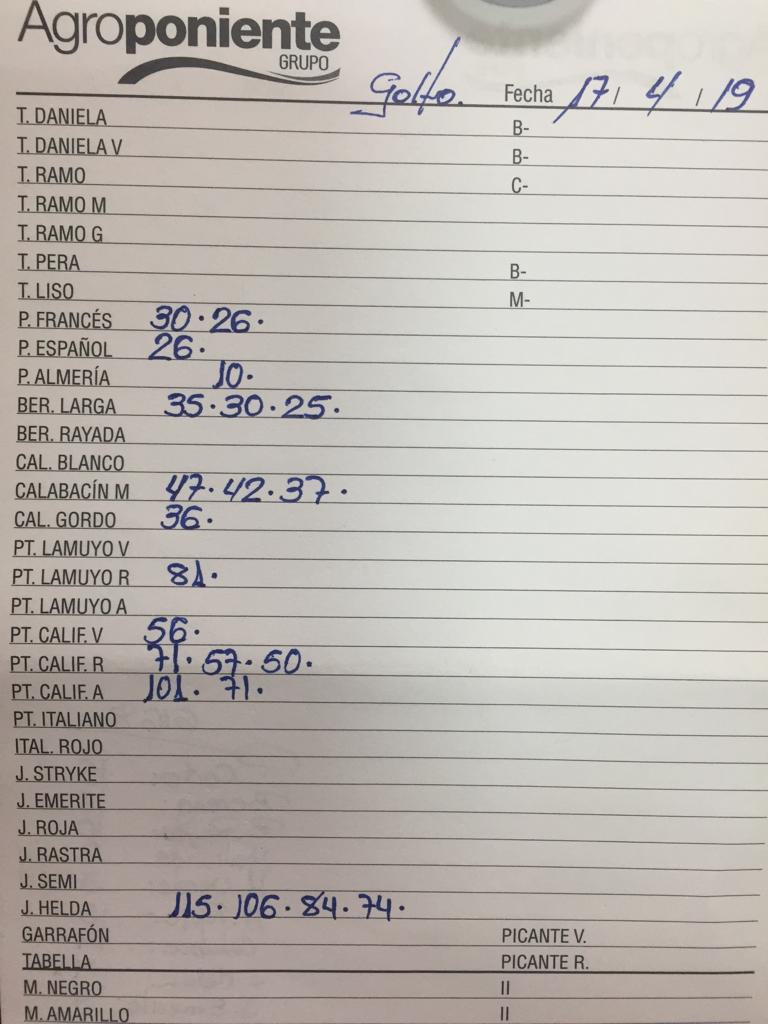 Agroponiente
GRUPO
Golfo. Fecha 17 / 4 / 19
T. DANIELA B-
T. DANIELA V B-
T. RAMO C-
T. RAMO M
T. RAMO G
T. PERA B-
T. LISO M-
P. FRANCÉS 30 · 26 ·
P. ESPAÑOL 26 ·
P. ALMERÍA 10 ·
BER. LARGA 35 · 30 · 25 ·
BER. RAYADA
CAL. BLANCO
CALABACÍN M 47 · 42 · 37 ·
CAL. GORDO 36 ·
PT. LAMUYO V
PT. LAMUYO R 81 ·
PT. LAMUYO A
PT. CALIF. V 56 ·
PT. CALIF. R 71 · 57 · 50 ·
PT. CALIF. A 101 · 71 ·
PT. ITALIANO
ITAL. ROJO
J. STRYKE
J. EMERITE
J. ROJA
J. RASTRA
J. SEMI
J. HELDA 115 · 106 · 84 · 74 ·
GARRAFÓN PICANTE V.
TABELLA PICANTE R.
M. NEGRO II
M. AMARILLO II